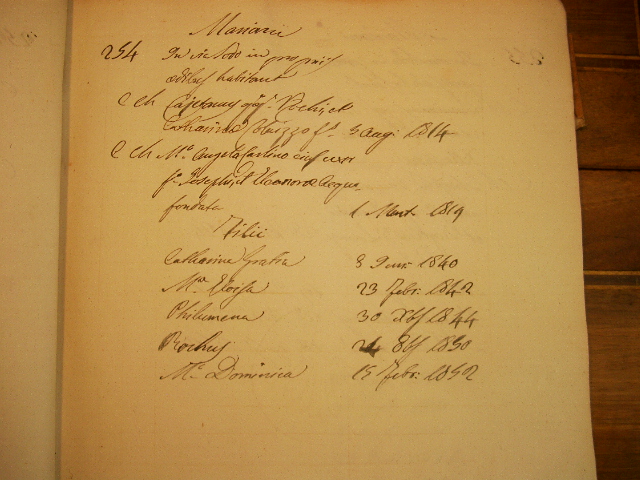 Mariani
254 In vico Sodo in propriis
ædibus habitant
C ch Cajetanus qm. Rochi, et
Catharinæ Coluizzo f.s 5 Aug. 1814
C ch M.a Angela Carlino ejus uxor
f.a Josephi, et Eleonoræ Acqua
fondata 1 Mart. 1819
Filii
Catharina Gratia 3 Jun. 1840
M.a Eloisa 23 Febr. 1842
Philumena 30 Xbs 1844
Rochus 24 8bs 1850
M.a Dominica 15 Febr. 1852